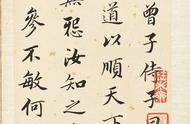 曾子侍子
道以順天下
無怨汝知之
參不敏何